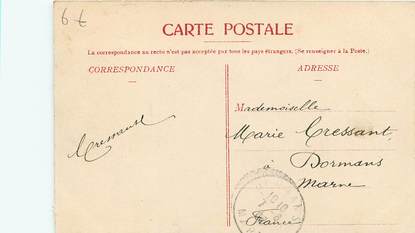 6 €
CARTE POSTALE
La correspondance au recto n'est pas acceptée par tous les pays étrangers. (Se renseigner à la Poste.)
CORRESPONDANCE
ADRESSE
Mademoiselle
Marie Cressant
à
Dormans
Marne
France